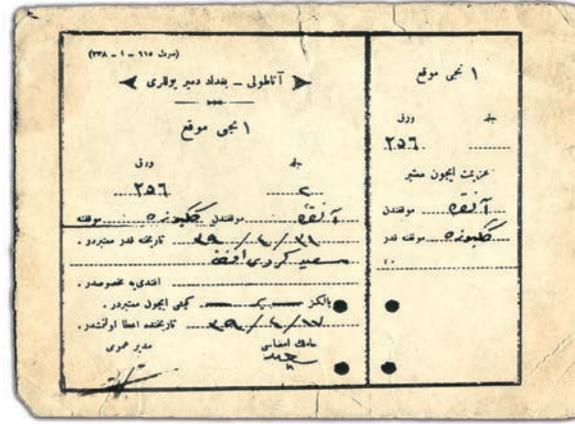 (مودل ٦١٥ – ١ – ٣٣٨)
آناطولی – بغداد دمیر یوللری
١ نجی موقع
جلد ورق
٢ ٢٥٦
آنقره موقفندن ككبوزه موقفنه
٣١ / ٤ / ٣٩ تاریخنه قدر معتبردر .
سعید كردی افندی
افندی‌یه مخصوصدر .
یالكز ٢ كیشی ایچون معتبردر .
١٧ / ٤ / ٣٩ تاریخنده اعطا اولنمشدر .
حامل امضاسی مدیر عمومی
سعید
١ نجی موقع
جلد ورق
٢٥٦
عزیمت ایچون معتبر
آنقره موقفندن
ككبوزه موقفنه قدر